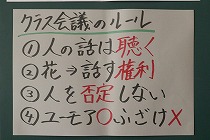 クラス会議のルール
①人の話は聴く
②花→話す権利
③人を否定しない
④ユーモア○ふざけ×